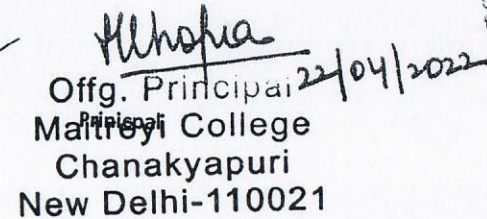 Offg. Principal 22/04/2022
Principal
Maitreyi College
Chanakyapuri
New Delhi-110021